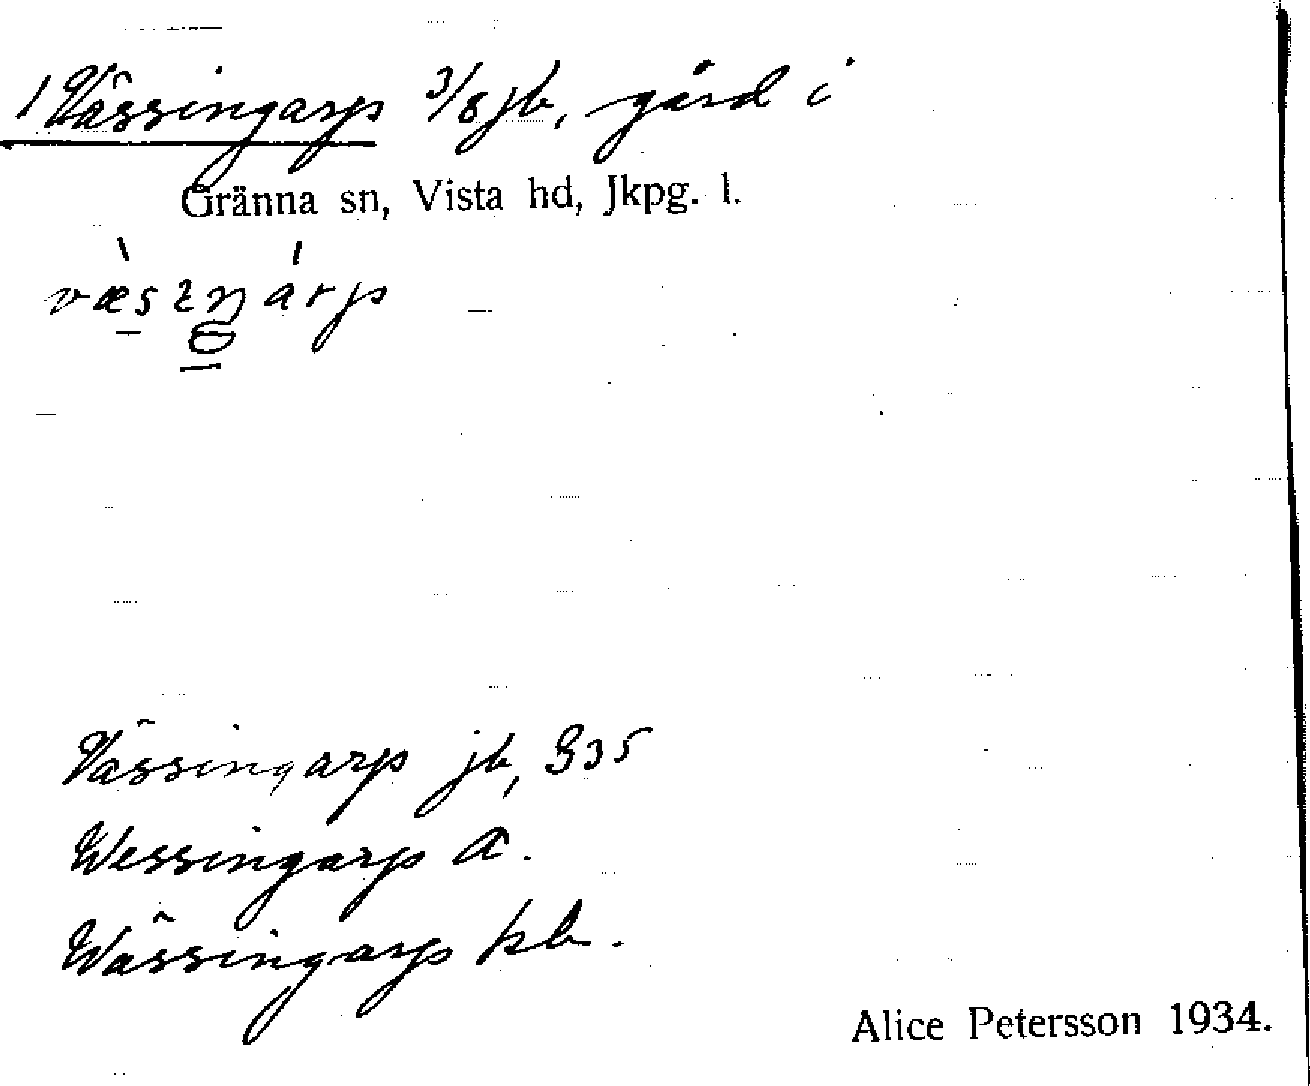 1 Vässingarp 3/8 jb, gård i
Gränna sn, Vista hd, Jkpg. l.
Vässingarp jb, G35
Wessingarp A.
Wässingarp kb.
Alice Petersson 1934.